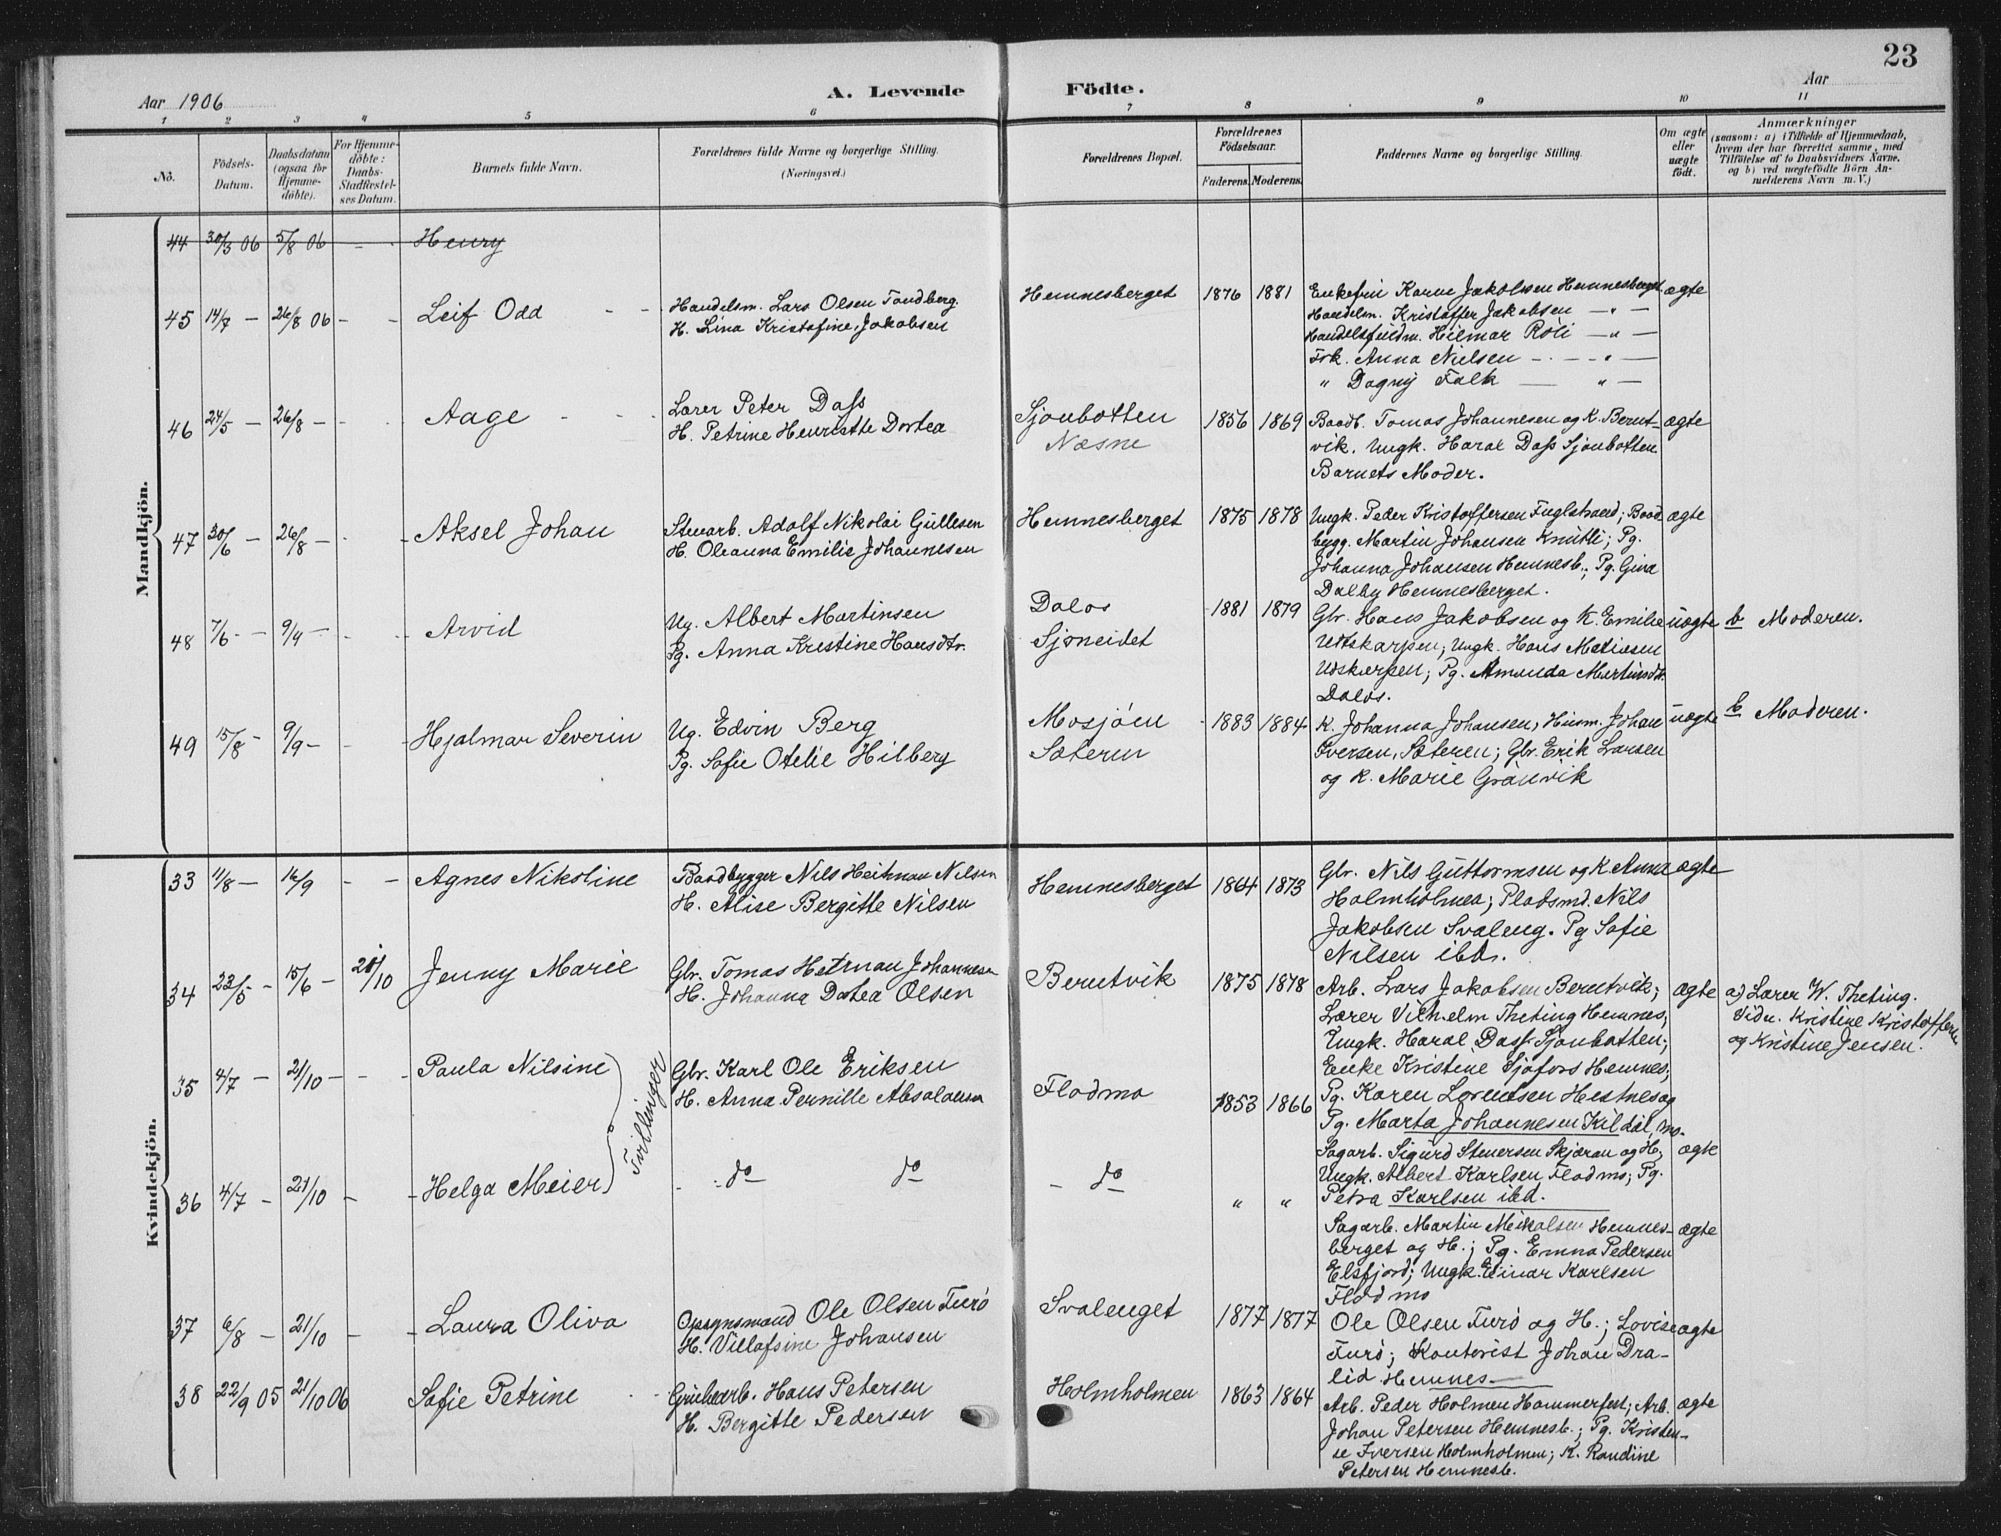 23
Aar 1906
A. Levende Födte.
Aar
1 2 3 4 5 6 7 8 9 10 11
No.
Födsels-
Datum.
Daabsdatum
(ogsaa for
Hjemme-
döbte).
For Hjemme-
döbte:
Daabs-
Stadfæstel-
ses Datum.
Barnets fulde Navn.
Forældrenes fulde Navne og borgerlige Stilling.
(Næringsvei.)
Forældrenes Bopæl.
Forældrenes
Födselsaar.
Faderens. Moderens.
Faddernes Navne og borgerlige Stilling.
Om ægte
eller
uægte
födt.
Anmærkninger
(saasom: a) i Tilfælde af Hjemmedaab,
hvem der har forrettet samme, med
Tilföielse af to Daabsvidners Navne,
og b) ved uægtefödte Börn An-
melderens Navn m. V.)
Mandkjön.
44 30/3 06 5/8 06 - Henry
45 14/7 - 26/8 06 - - Leif Odd - -
Handelsm. Lars Olsen Tondberg.
H. Lina Kristofine Jakobsen
Hemnesberget 1876 1881
Enkefru Karen Jakobsen Hemnesberget ægte
Handelm. Kristoffer Jakobsen - " -
Handelsfuldm. Hilmar Röli - " -
Frk. Anna Nielsen - - " -
" Dagny Falk - " -
46 24/5 - 26/8 - - Aage - - -
Lærer Peter Dass
H. Petrine Henriette Dortea
Sjonbotten
Næsne
1856 1869
Baadb. Tomas Johannesen og K. Berut- ægte
vik. Ungk. Haral Dass Sjonbotten
Barnets Moder.
47 30/6 - 26/8 - - - Aksel Johan
Stenarb. Adolf Nikolai Gullesen
H. Oleanna Emilie Johannesen
Hemnesberget 1875 1878
Ungk. Peder Kristoffersen Fuglstrand; Baad ægte
bygg. Martin Johansen Knutli; Pg.
Johanna Johansen Hemnesb.; Pg. Gina
Dalby Hemnesberget.
48 7/6 - - 9/9 - - - Arvid
Ug. Albert Martinsen
Pg. Anna Kristine Hansdtr.
Dalos
Sjoneidet
1881 1879
Gbr. Hans Jakobsen og K. Emilie uægte
Utskarpen; Ungk. Hans Matiesen
Utskarpen; Pg. Amanda Martinsdt.
Dalos.
b Moderen.
49 15/8 - 9/9 - - - Hjalmar Severin
Ug. Edvin Berg
Pg. Sofie Otelie Hilberg
Mosjöen
Sæteren
1883 1884
K. Johanna Johansen, Husm. Johan uægte
Iversen, Sæteren; Gbr. Erik Larsen
og K. Marie Granvik
b Moderen.
Kvindekjön.
33 11/8 - 16/9 - - Agnes Nikoline
Baadbygger Nils Heitman Nilsen
H. Alise Bergitte Nilsen
Hemnesberget 1864 1873
Gbr. Nils Guttormsen og K Anna ægte
Holmholmen; Pladsmd. Nils
Jakobsen Svaleng. Pg Sofie
Nilsen ibd.
34 22/5 - 15/6 - 21/10 Jenny Marie
Gbr. Tomas Hetman Johannesen
H. Johanna Datea Olsen
Berutvik 1875 1878
Arb. Lars Jakobsen Berutvik; ægte
Lærer Vilhelm Theting Hemnes;
Ungk. Haral Dass Sjonbotten;
Enke Kristine Sjøfors Hemnes;
Pg. Karen Lorentsen Hestnes og
Pg. Marta Johannesen Kildal, mo.
a) Lærer W. Theting.
Vidn. Kristine Kristoffersen
og Kristine Jensen.
35 4/7 - 21/10 - - - Paula Nilsine
Tvillinger
Gbr. Karl Ole Eriksen
H. Anna Pernille Absalonsen
Flodmo
1853 1866
Sagarb. Sigurd Stenersen Skjæran og H; ægte
Ungk. Albert Karlsen Flodmo; Pg.
Petra Karlsen ibd.
36 4/7 - 21/10 - - Helga Meier
- do do - do " "
Sagarb. Martin Mikalsen Hemnes- ægte
berget og H.; Pg. Emma Pedersen
Elsfjord; Ungk. Einar Karlsen
Flodmo
37 6/8 - 21/10 - - Laura Oliva
Opsynsmand Ole Olsen Furö
H. Villafsine Johansen
Svalenget 1877 1877
Ole Olsen Furö og H.; Lovise ægte
Furö; Kontorist Johan Dra-
lid Hemnes
38 22/9 05 21/10 06 Sofie Petrine - -
Grubearb. Hans Petersen
H. Bergitte Pedersen
Holmholmen 1863 1864
Arb. Peder Holmen Hammerfest; Arb. ægte
Johan Petersen Hemnesb.; Pg. Kristen-
se Iversen Holmholmen; K. Randine
Petersen Hemnesb.